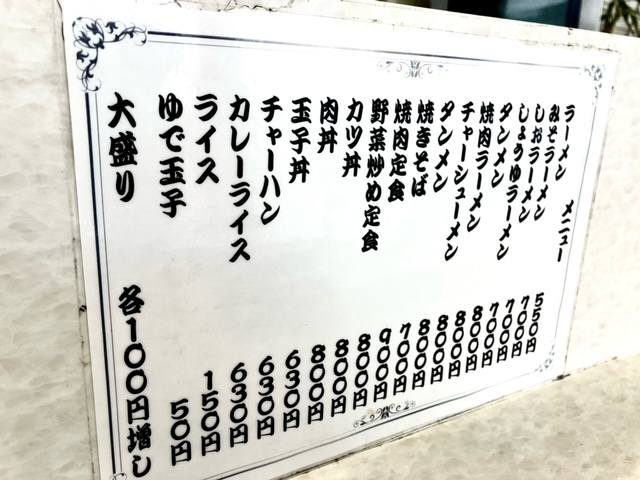 ラーメン メニュー
みそラーメン
しおラーメン
しょうゆラーメン
タンメン
焼肉ラーメン
チャーシューメン
タンメン
焼きそば
焼肉定食
野菜炒め定食
カツ丼
肉丼
玉子丼
チャーハン
カレーライス
ライス
ゆで玉子
大盛り
550円
700円
700円
700円
800円
800円
800円
800円
700円
900円
800円
800円
800円
630円
630円
630円
150円
50円
各100円増し